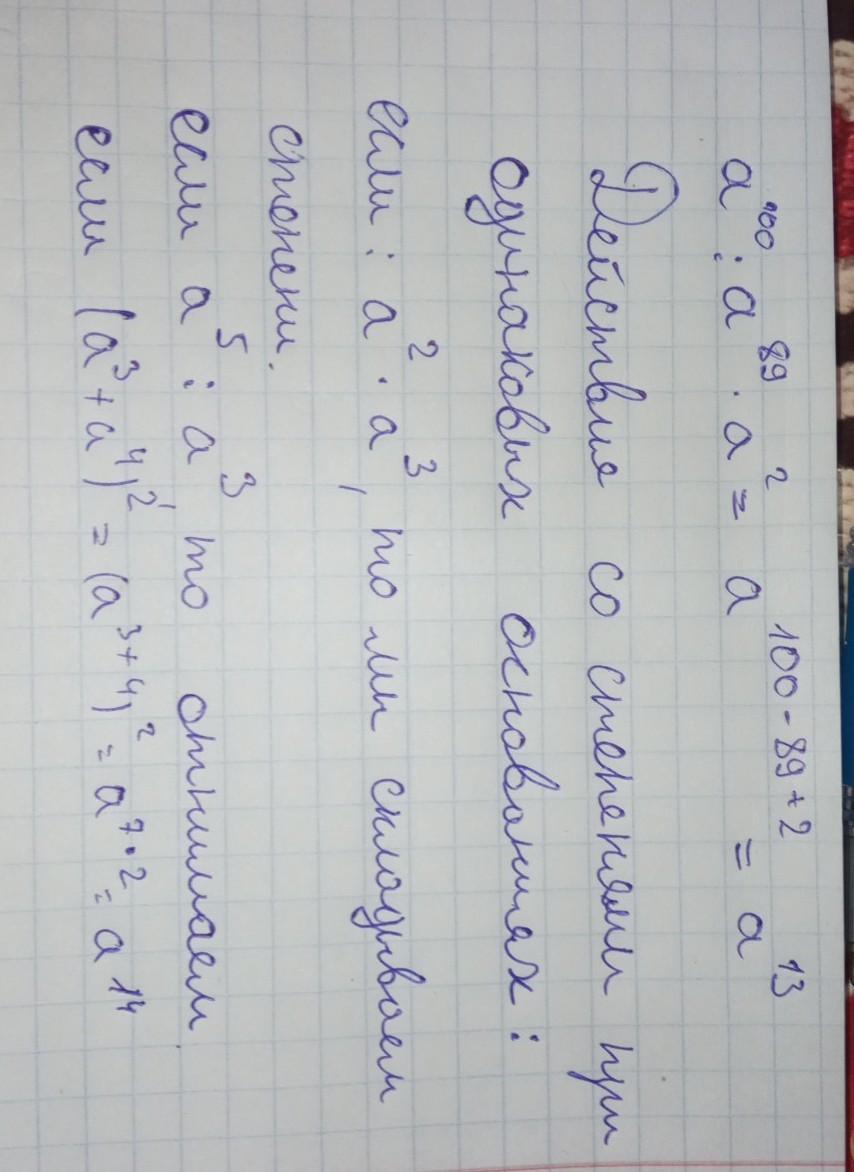 a¹⁰⁰ : a⁸⁹ · a² = a¹⁰⁰⁻⁸⁹⁺² = a¹³
Действия со степенями при
одинаковых основаниях:
если: a² · a³, то мы складываем
степени.
если a⁵ : a³, то отнимаем
если (a³ + a⁴)² = (a³⁺⁴)² = a⁷·² = a¹⁴